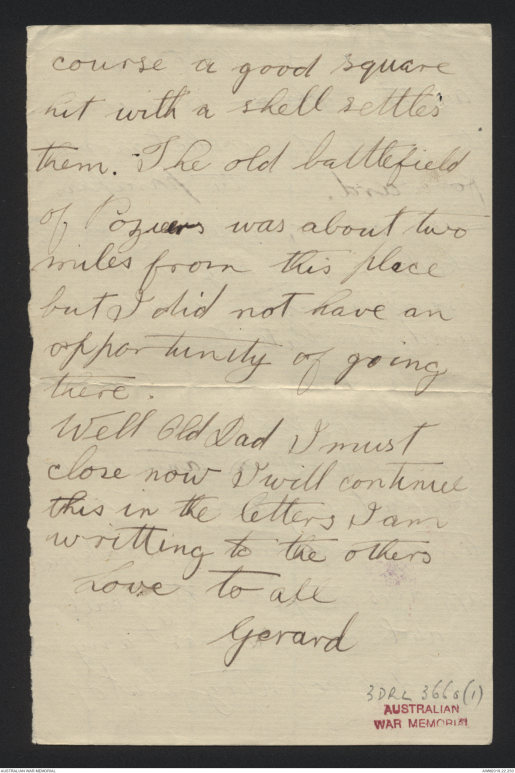 course a good square
hit with a shell settles
them. The old battlefield
of Poziers was about two
miles from this place
but I did not have an
opportunity of going
there.
Well Old Dad I must
close now I will continue
this in the letters I am
writting to the others
Love to all
Gerard
3DRL 3660(1)
AUSTRALIAN
WAR MEMORIAL
AUSTRALIAN WAR MEMORIAL